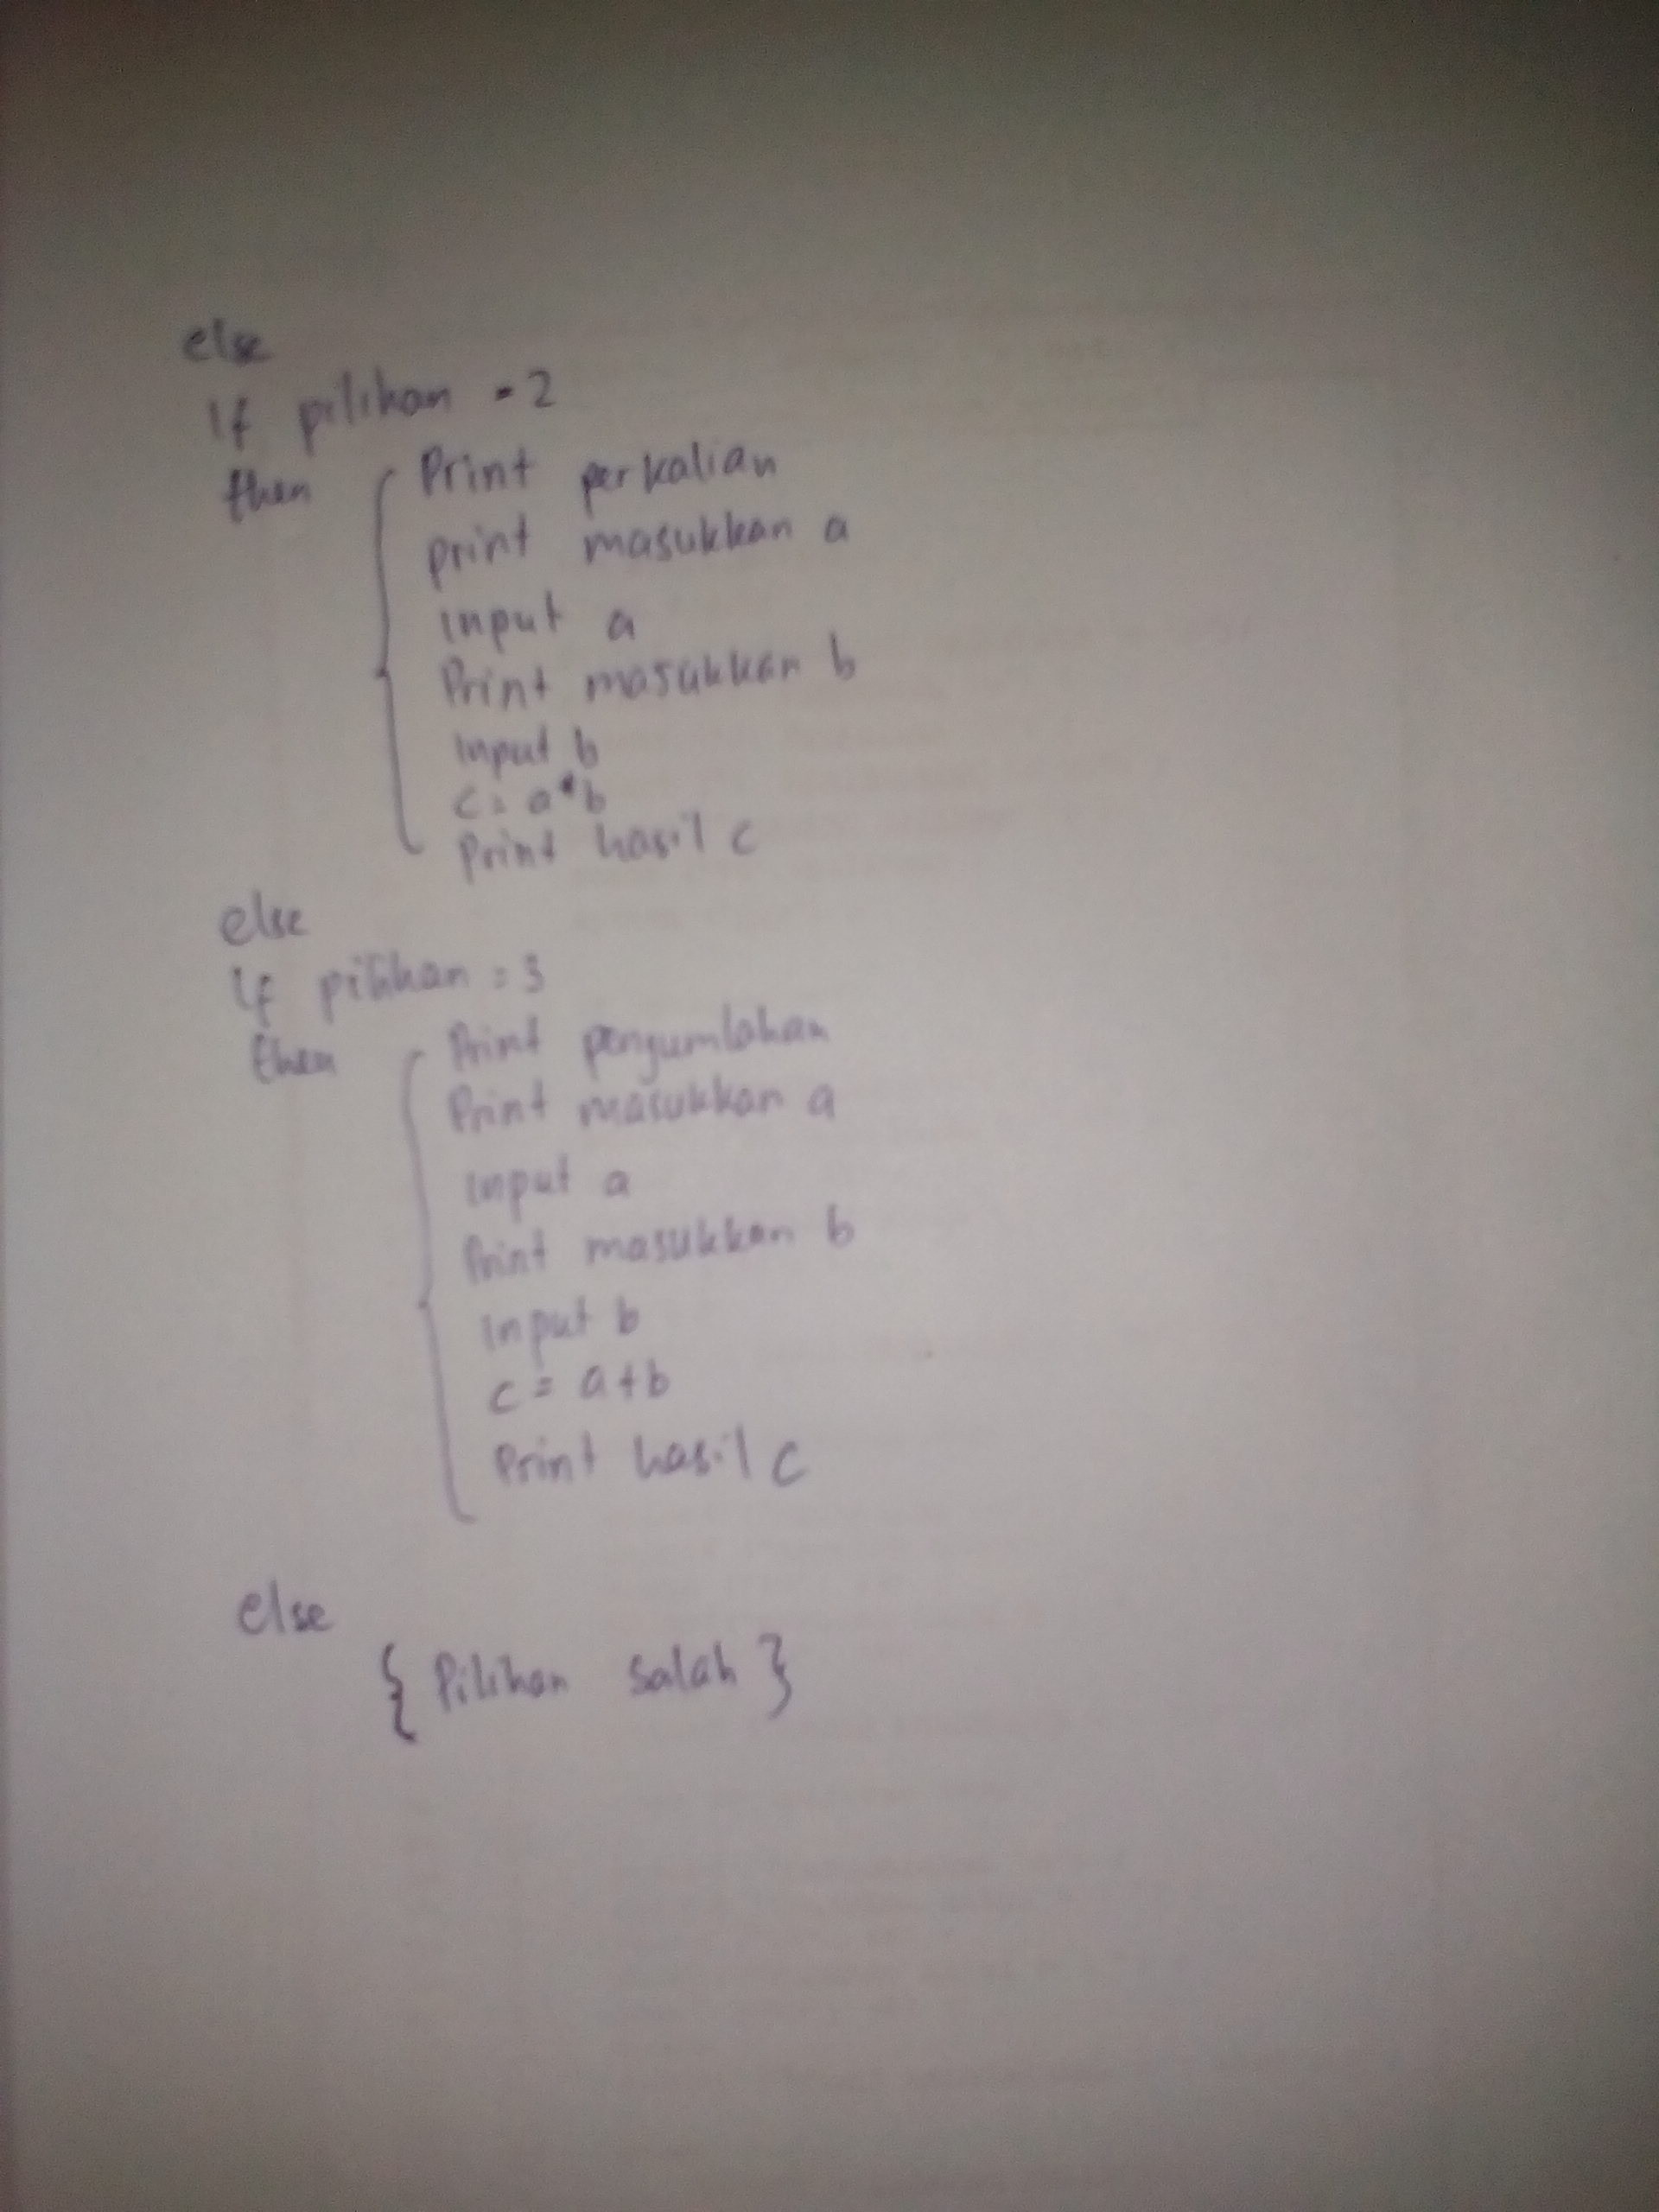 else
If pilihan = 2
then { Print perkalian
print masukkan a
input a
Print masukkan b
input b
c = a*b
Print hasil c
else
If pilihan = 3
then { Print penjumlahan
Print masukkan a
input a
Print masukkan b
input b
c = a+b
Print hasil c
else
{ Pilihan salah }